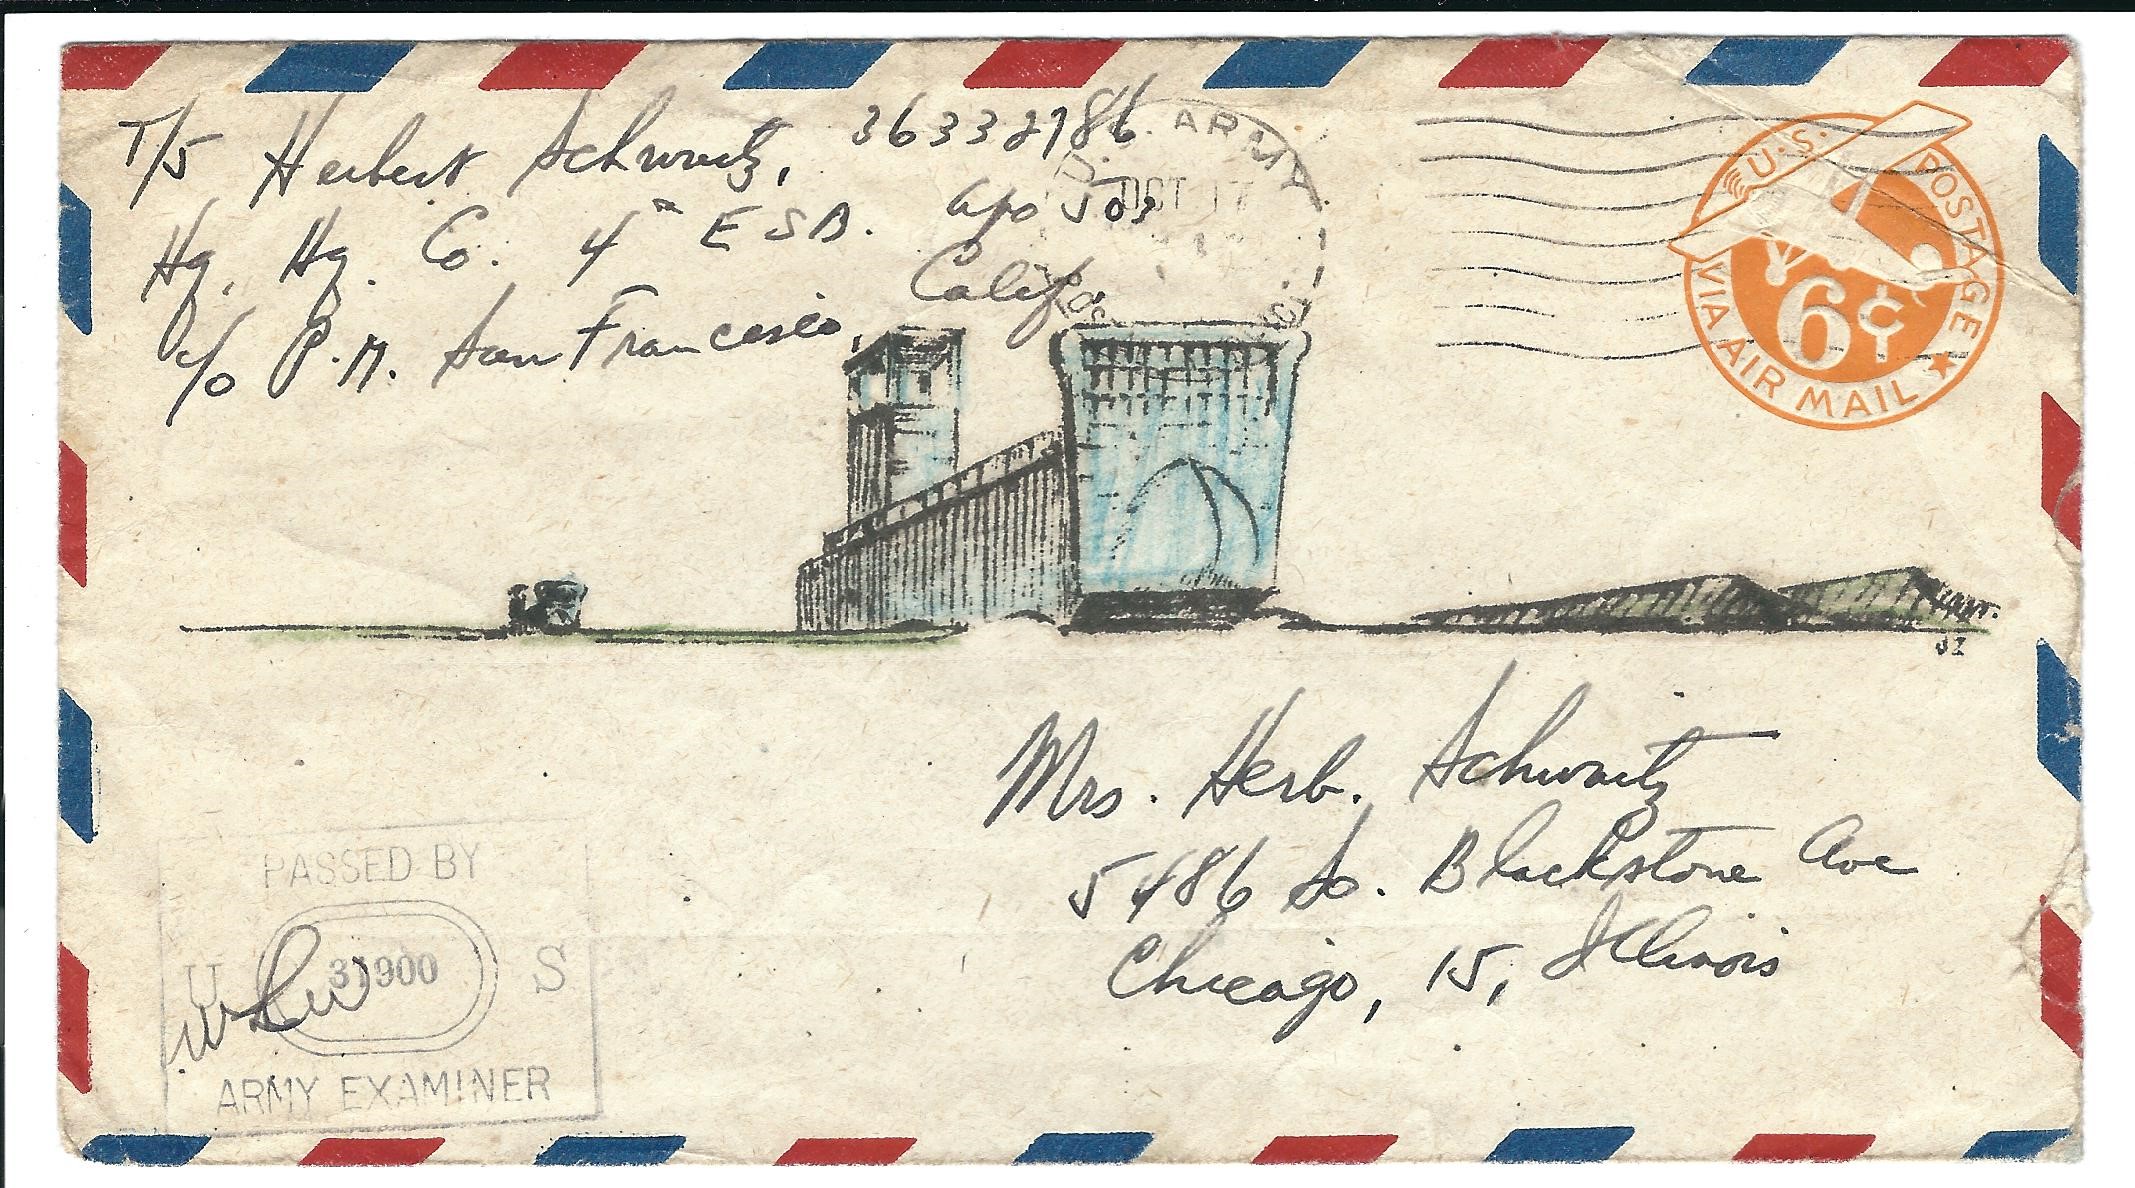 T/5 Herbert Schwartz, 36332786
Hq. Hq. Co. 4th ESB. APO 503
c/o P.M. San Francisco, Calif
U.S. ARMY
OCT 17
POS
U.S. POSTAGE
6¢
VIA AIR MAIL
Mrs. Herb. Schwartz
5486 So. Blackstone Ave
Chicago, 15, Illinois
PASSED BY
U 37900 S
ARMY EXAMINER